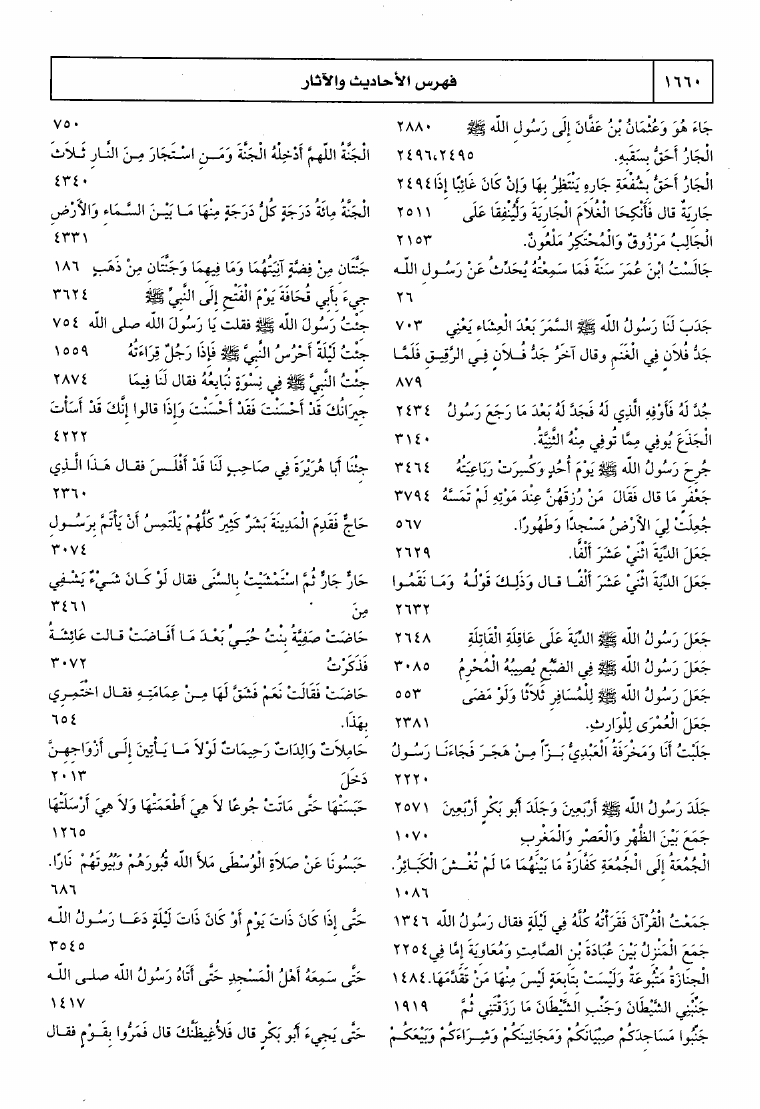 ١٦٦٠
فهرس الأحاديث والآثار
جَاءَ هُوَ وَعُثْمَانُ بْنُ عَفَّانَ إِلَى رَسُولِ اللّه ﷺ ٢٨٨٠
الْجَارُ أَحَقُّ بِسَقَبِهِ. ٢٤٩٦،٢٤٩٥
الْجَارُ أَحَقُّ بِشُفْعَةِ جَارِهِ يَنْتَظِرُ بِهَا وَإِنْ كَانَ غَائِبًا إِذَا ٢٤٩٤
جَارِيَةً قال فَأَنْكِحَا الْغُلَامَ الْجَارِيَةَ وَلْيُنْفِقَا عَلَى ٢٥١١
الْجَالِبُ مَرْزُوقٌ وَالْمُحْتَكِرُ مَلْعُونٌ. ٢١٥٣
جَالَسْتُ ابْنَ عُمَرَ سَنَةً فَمَا سَمِعْتُهُ يُحَدِّثُ عَنْ رَسُـولِ اللّـه
٢٦
جَدَبَ لَنَا رَسُولُ اللّه ﷺ السَّمَرَ بَعْدَ الْعِشَاءِ يَعْنِي ٧٠٣
جَدُّ فُلَانٍ فِي الْغَنَمِ وقال آخَرُ جَدُّ فُـلَانٍ فِـي الرَّقِيـقِ فَلَمَّـا
٨٧٩
جُدَّ لَهُ فَأَوْفِهِ الَّذِي لَهُ فَجَدَّ لَهُ بَعْدَ مَا رَجَعَ رَسُولُ ٢٤٣٤
الْجَذَعَ يُوفِي مِمَّا تُوفِي مِنْهُ الثَّنِيَّةُ. ٣١٤٠
جُرِحَ رَسُولُ اللّه ﷺ يَوْمَ أُحُدٍ وَكُسِرَتْ رَبَاعِيَتُهُ ٣٤٦٤
جَعْفَرٍ مَا قال فَقَالَ مَنْ رُزِقَهُنَّ عِنْدَ مَوْتِهِ لَمْ تَمَسَّهُ ٣٧٩٤
جُعِلَتْ لِيَ الأَرْضُ مَسْجِدًا وَطَهُورًا. ٥٦٧
جَعَلَ الدِّيَةَ اثْنَيْ عَشَرَ أَلْفًا. ٢٦٢٩
جَعَلَ الدِّيَةَ اثْنَيْ عَشَرَ أَلْفًـا قـال وَذَلِـكَ قَوْلُـهُ وَمَـا نَقَمُـوا
٢٦٣٢
جَعَلَ رَسُولُ اللّه ﷺ الدِّيَةَ عَلَى عَاقِلَةِ الْقَاتِلَةِ ٢٦٤٨
جَعَلَ رَسُولُ اللّه ﷺ فِي الضَّبُعِ يُصِيبُهُ الْمُحْرِمُ ٣٠٨٥
جَعَلَ رَسُولُ اللّه ﷺ لِلْمُسَافِرِ ثَلَاثًا وَلَوْ مَضَى ٥٥٣
جَعَلَ الْعُمْرَى لِلْوَارِثِ. ٢٣٨١
جَلَبْتُ أَنَا وَمَخْرَفَةُ الْعَبْدِيُّ بَـزًّا مِـنْ هَجَـرَ فَجَاءَنَـا رَسُـولُ
٢٢٢٠
جَلَدَ رَسُولُ اللّه ﷺ أَرْبَعِينَ وَجَلَدَ أَبُو بَكْرٍ أَرْبَعِينَ ٢٥٧١
جَمَعَ بَيْنَ الظُّهْرِ وَالْعَصْرِ وَالْمَغْرِبِ ١٠٧٠
الْجُمُعَةُ إِلَى الْجُمُعَةِ كَفَّارَةُ مَا بَيْنَهُمَا مَا لَمْ تُغْـشَ الْكَبَـائِرُ.
١٠٨٦
جَمَعْتُ الْقُرْآنَ فَقَرَأْتُهُ كُلَّهُ فِي لَيْلَةٍ فقال رَسُولُ اللّه ١٣٤٦
جَمَعَ الْمَنْزِلُ بَيْنَ عُبَادَةَ بْنِ الصَّامِتِ وَمُعَاوِيَةَ إِمَّا فِي ٢٢٥٤
الْجِنَازَةُ مَتْبُوعَةٌ وَلَيْسَتْ بِتَابِعَةٍ لَيْسَ مِنْهَا مَنْ تَقَدَّمَهَا. ١٤٨٤
جَنِّبْنِي الشَّيْطَانَ وَجَنِّبِ الشَّيْطَانَ مَا رَزَقْتَنِي ثُمَّ ١٩١٩
جَنِّبُوا مَسَاجِدَكُمْ صِبْيَانَكُمْ وَمَجَانِينَكُمْ وَشِـرَاءَكُمْ وَبَيْعَكُـمْ
٧٥٠
الْجَنَّةُ اللَّهمَّ أَدْخِلْهُ الْجَنَّةَ وَمَـنِ اسْـتَجَارَ مِـنَ النَّـارِ ثَـلَاثَ
٤٣٤٠
الْجَنَّةُ مِائَةُ دَرَجَةٍ كُلُّ دَرَجَةٍ مِنْهَا مَـا بَيْـنَ السَّـمَاءِ وَالأَرْضِ
٤٣٣١
جَنَّتَانِ مِنْ فِضَّةٍ آنِيَتُهُمَا وَمَا فِيهِمَا وَجَنَّتَانِ مِنْ ذَهَبٍ ١٨٦
جِيءَ بِأَبِي قُحَافَةَ يَوْمَ الْفَتْحِ إِلَى النَّبِيِّ ﷺ ٣٦٢٤
جِئْتُ رَسُولَ اللّه ﷺ فقلت يَا رَسُولَ اللّه صلى اللّه ٧٥٤
جِئْتُ لَيْلَةً أَحْرُسُ النَّبِيَّ ﷺ فَإِذَا رَجُلٌ قِرَاءَتُهُ ١٥٥٩
جِئْتُ النَّبِيَّ ﷺ فِي نِسْوَةٍ نُبَايِعُهُ فقال لَنَا فِيمَا ٢٨٧٤
جِيرَانُكَ قَدْ أَحْسَنْتَ فَقَدْ أَحْسَنْتَ وَإِذَا قالوا إِنَّكَ قَدْ أَسَأْتَ
٤٢٢٢
جِئْنَا أَبَا هُرَيْرَةَ فِي صَاحِبٍ لَنَا قَدْ أَفْلَـسَ فقـال هَـذَا الَّـذِي
٢٣٦٠
حَاجٌّ فَقَدِمَ الْمَدِينَةَ بَشَرٌ كَثِيرٌ كُلُّهُمْ يَلْتَمِسُ أَنْ يَأْتَمَّ بِرَسُـولِ
٣٠٧٤
حَارٌّ جَارٌّ ثُمَّ اسْتَمْشَيْتُ بِالسَّنَى فقال لَوْ كَـانَ شَـيْءٌ يَشْـفِي
مِنَ ٣٤٦١
حَاضَتْ صَفِيَّةُ بِنْتُ حُيَـيٍّ بَعْـدَ مَـا أَفَـاضَتْ قـالت عَائِشَـةُ
فَذَكَرْتُ ٣٠٧٢
حَاضَتْ فَقَالَتْ نَعَمْ فَشَقَّ لَهَا مِـنْ عِمَامَتِـهِ فقـال اخْتَمِـرِي
بِهَذَا. ٦٥٤
حَامِلَاتٌ وَالِدَاتٌ رَحِيمَاتٌ لَوْلَا مَـا يَـأْتِينَ إِلَـى أَزْوَاجِهِـنَّ
دَخَلَ ٢٠١٣
حَبَسَتْهَا حَتَّى مَاتَتْ جُوعًا لَا هِيَ أَطْعَمَتْهَا وَلَا هِيَ أَرْسَلَتْهَا
١٢٦٥
حَبَسُونَا عَنْ صَلَاةِ الْوُسْطَى مَلَأَ اللّه قُبُورَهُمْ وَبُيُوتَهُمْ نَارًا.
٦٨٦
حَتَّى إِذَا كَانَ ذَاتَ يَوْمٍ أَوْ كَانَ ذَاتَ لَيْلَةٍ دَعَـا رَسُـولُ اللّـه
٣٥٤٥
حَتَّى سَمِعَهُ أَهْلُ الْمَسْجِدِ حَتَّى أَتَاهُ رَسُولُ اللّه صلـى اللّـه
١٤١٧
حَتَّى يَجِيءَ أَبُو بَكْرٍ قال فَلَأُغِيظَنَّكَ قال فَمَرُّوا بِقَـوْمٍ فقـال